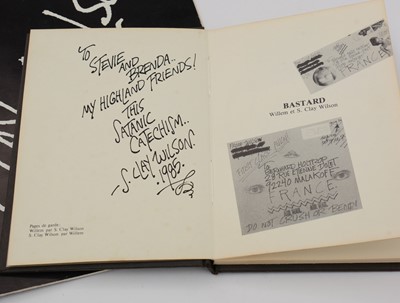 TO
STEVIE
AND
BRENDA..
MY HIGHLAND FRIENDS!
THIS
SATANIC
CATECHISM..
S. CLAY WILSON
1988
Pages de garde:
Willem par S. Clay Wilson
S. Clay Wilson par Willem
FRANCE
BASTARD
Willem et S. Clay Wilson
BERNARD
92240 MALAKOFF
FRANCE
DO NOT CRUSH OR BEND!